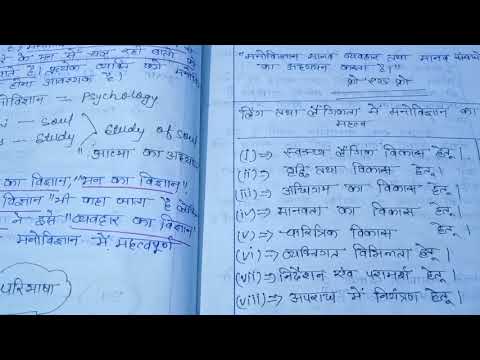 के मन में चल रही बातों को
प्रत्येक व्यक्ति को
होना आवश्यक है।
मनोविज्ञान — Psychology
— Soul
— Study
Study of Soul
"आत्मा का अध्ययन
का विज्ञान, "मन का विज्ञान"
विज्ञान" भी कहा जाता है
ने इसे "व्यवहार का विज्ञान"
मनोविज्ञान में महत्वपूर्ण
परिभाषा
"मनोविज्ञान मानव व्यवहार तथा मानव संबंधों
का अध्ययन करता है।"
क्रो एण्ड क्रो
लिंग तथा लैंगिकता में मनोविज्ञान का
महत्व
(i) ⇒ स्वस्थ लैंगिक विकास हेतू।
(ii) ⇒ वृद्धि तथा विकास हेतू।
(iii) ⇒ अधिगम का विकास हेतू।
(iv) ⇒ मानवता का विकास हेतू।
(v) ⇒ चारित्रिक विकास हेतू।
(vi) ⇒ व्यक्तिगत विभिन्नता हेतू।
(vii) ⇒ निर्देशन एंव परामर्श हेतू।
(viii) ⇒ अपराध में नियंत्रण हेतू।